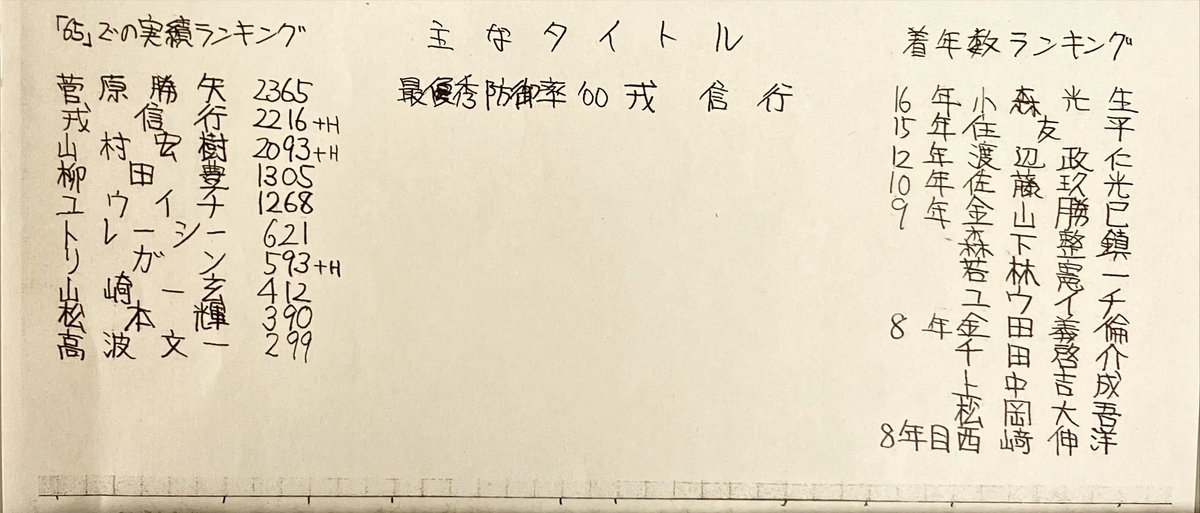 「65」での実績ランキング
菅原勝矢 2365
戎信行 2216+H
山村宏樹 2093+H
柳田豊 1305
ユウイチ 1268
トレーシー 621
リガン 593+H
山崎一玄 412
松本輝 390
高波文一 299
主なタイトル
最優秀防御率'00 戎信行
着年数ランキング
16年 小森光生
15年 住友平
12年 渡辺政仁
10年 佐藤玖光
9年 金山勝巳
森下整鎮
若林憲一
ユウイチ
8年 金田義倫
千田啓介
上中吉成
松岡大吾
8年目 西﨑伸洋